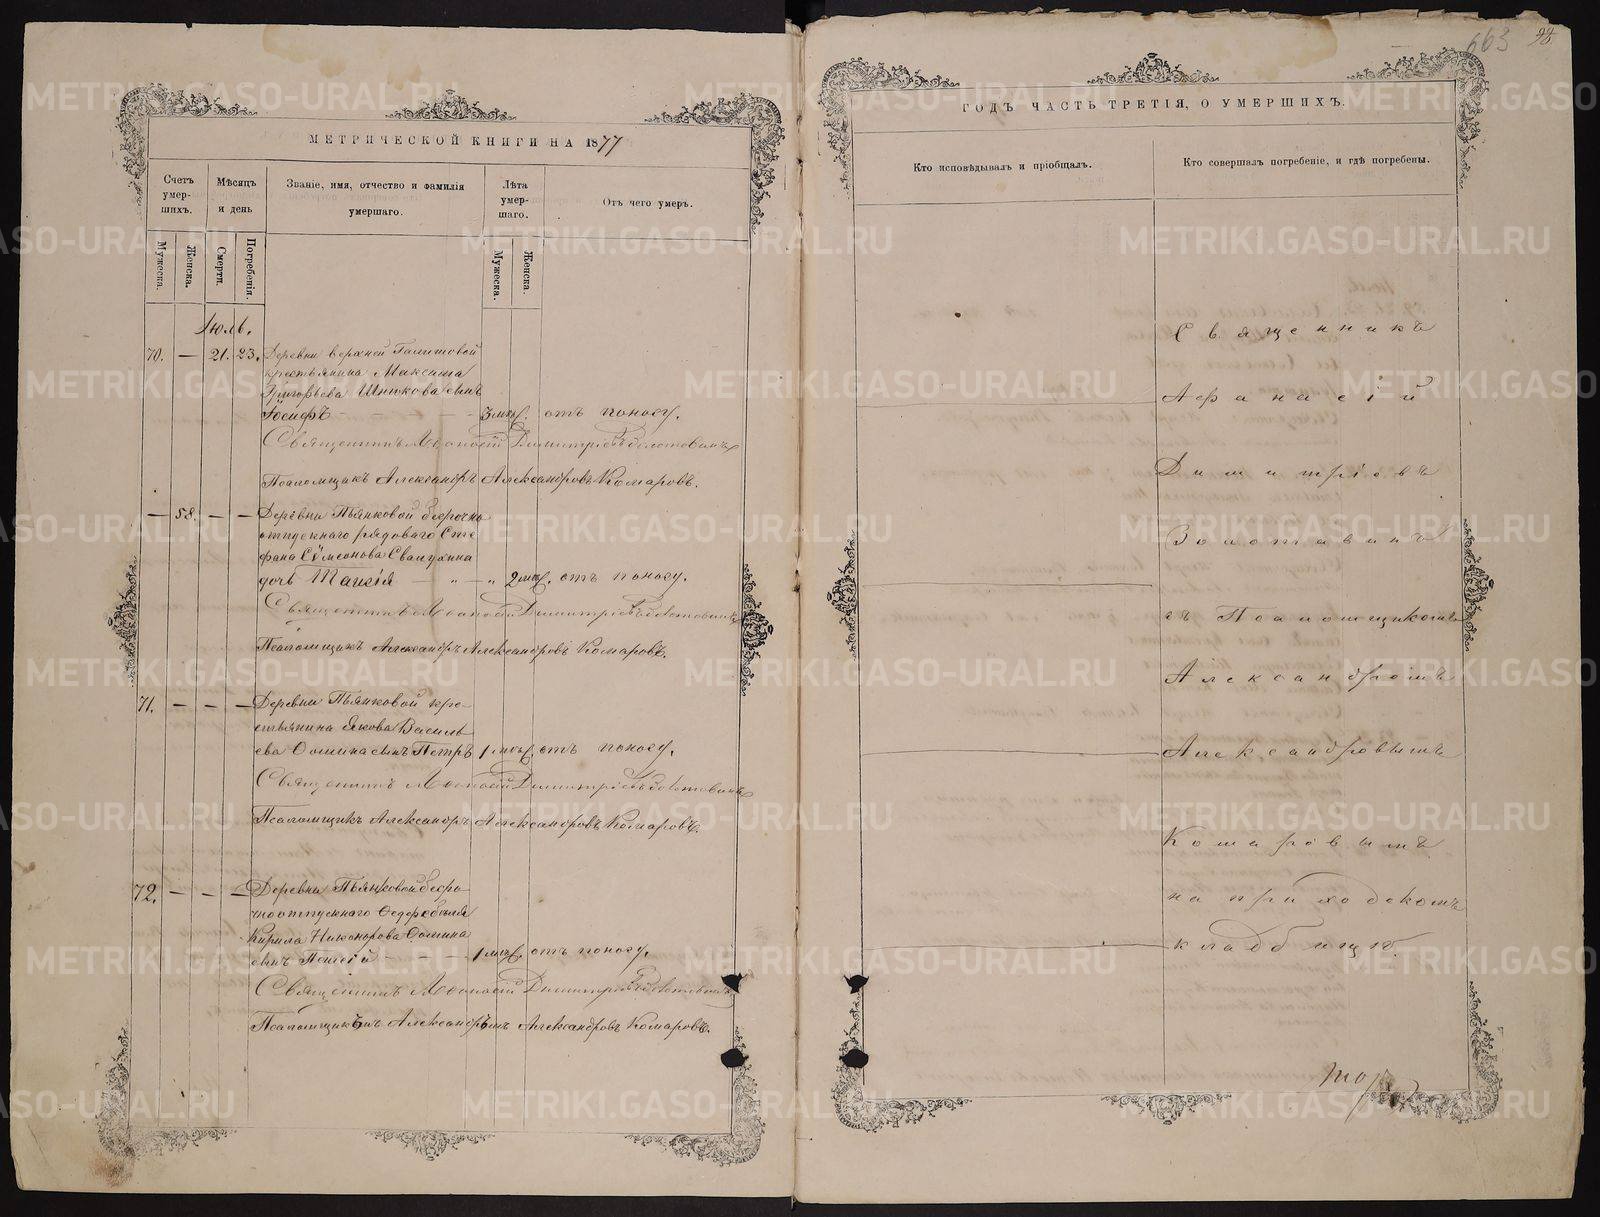 МЕТРИЧЕСКОЙ КНИГИ НА 1877
Счетъ умер-шихъ.
Мѣсяцъ и день
Званіе, имя, отчество и фамилія умершаго.
Лѣта умер-шаго.
Отъ чего умеръ.
Мужеска.
Женска.
Смерти.
Погребенія.
Мужеска.
Женска.
Іюль.
70. — 21. 23. Деревни верхней
крестьянина Максима
Григорьева Шнюкова сынъ
Іосифъ — — — 3 мѣс. отъ поносу.
Священникъ Аѳанасій Димитріевъ Золотавинъ
Псаломщикъ Александръ Александровъ Комаровъ.
— 58. — — Деревни Пьянковой безсрочно
отпускнаго рядоваго Сте
фана Сѵмеонова
дочь Таисія — " — " 2 мѣс. отъ поносу.
Священникъ Аѳанасій Димитріевъ Золотавинъ
Псаломщикъ Александръ Александровъ Комаровъ.
71. — — — Деревни Пьянковой кре-
стьянина Якова Василь
ева Ѳомина сынъ Петръ 1 мѣс. отъ поносу.
Священникъ Аѳанасій Димитріевъ Золотавинъ
Псаломщикъ Александръ Александровъ Комаровъ.
72. — — — Деревни Пьянковой безсро-
чноотпускнаго
Кирила Никонорова Ѳомина
сынъ — — — 1 мѣс. отъ поносу.
Священникъ Аѳанасій Димитріевъ Золотавинъ
Александръ Александровъ Комаровъ.
663 98
ГОДЪ ЧАСТЬ ТРЕТІЯ, О УМЕРШИХЪ.
Кто исповѣдывалъ и пріобщалъ.
Кто совершалъ погребеніе, и гдѣ погребены.
Священникъ
Афанасій
Димитріевъ
Золотавинъ
съ Псаломщикомъ
Александромъ
Александровымъ
Комаровымъ
на приходскомъ
кладбищѣ.
METRIKI.GASO-URAL.RU